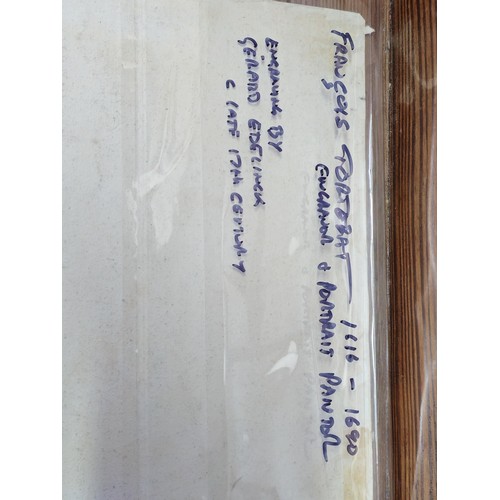 FRANÇOIS TORTEBAT 1616 - 1690
ENGRAVOR & PORTRAIT PAINTOR
ENGRAVING BY
GERARD EDELINCK
C LATE 17TH CENTURY